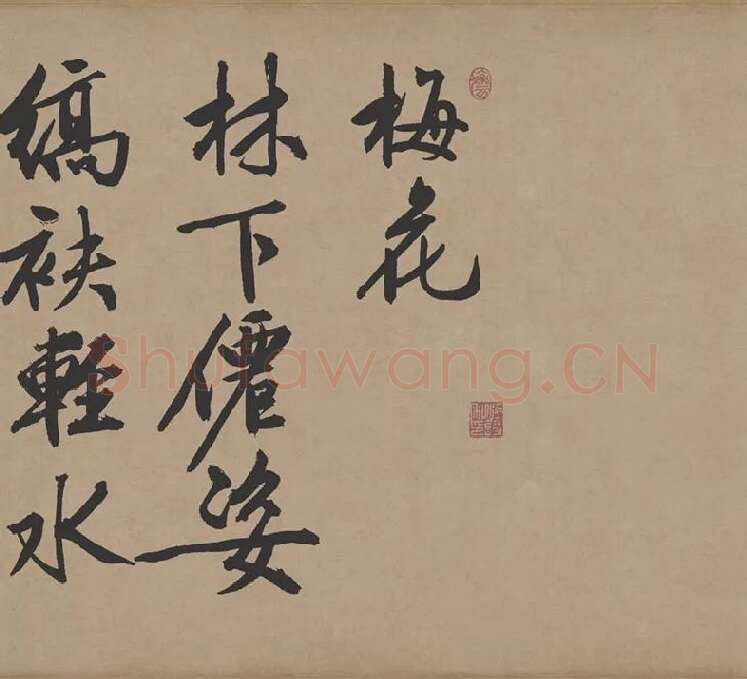 梅花
林下僊姿
縞袂輕水
Shufawang.CN